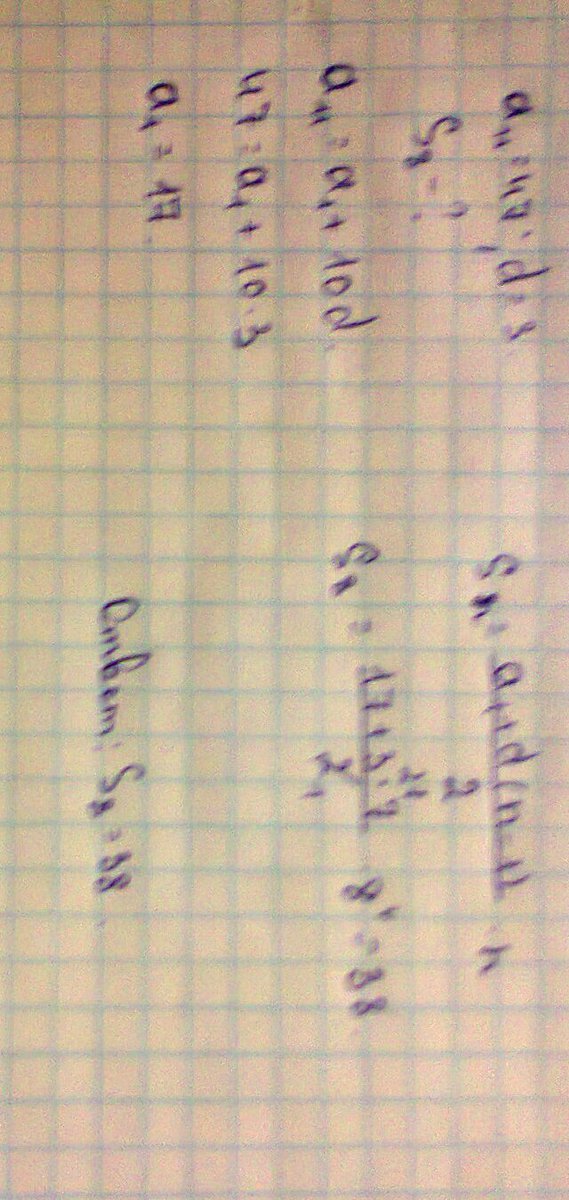 a₁₁ = 47; d = 3
S₈ = ?
a₁₁ = a₁ + 10d
47 = a₁ + 10·3
a₁ = 17
Sₙ = a₁ + d(n-1) / 2 · n
S₈ = 17 + 3·7 / 2 · 8 = 38
21
4
1
Ответ: S₈ = 38